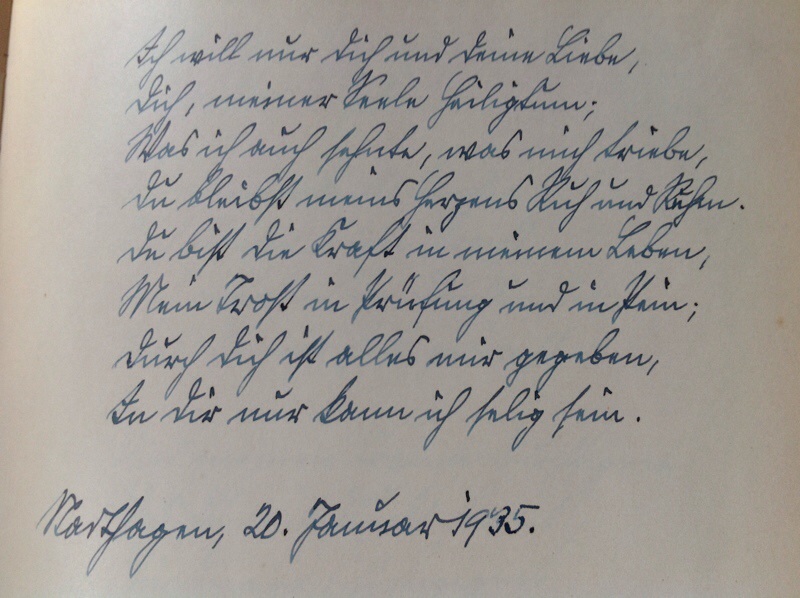 Ich will nur dich und deine Liebe,
Dich, meiner Seele Heiligtum;
Was ich auch sehnte, was mich triebe,
Du bleibst meins Herzens Ruh und Ruhm.
Du bist die Kraft in meinem Leben,
Mein Trost in Prüfung und in Pein;
Durch dich ist alles mir gegeben,
In dir nur kann ich selig sein.
20. Januar 1935.